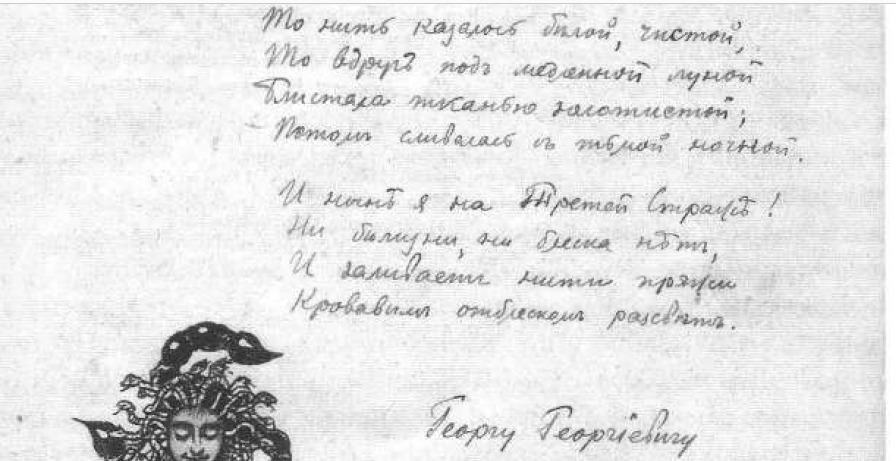 То нить казалось бѣлой, чистой,
То вдругъ подъ медленной луной
Блистала тканью золотистой;
Потомъ сливалась съ тьмой ночной.
И нынѣ я на Третей Стражѣ!
Ни бѣлизны, ни блеска нѣтъ,
И заливаетъ нити пряжи
Кровавымъ отблескомъ разсвѣтъ.
Георгу Георгіевичу